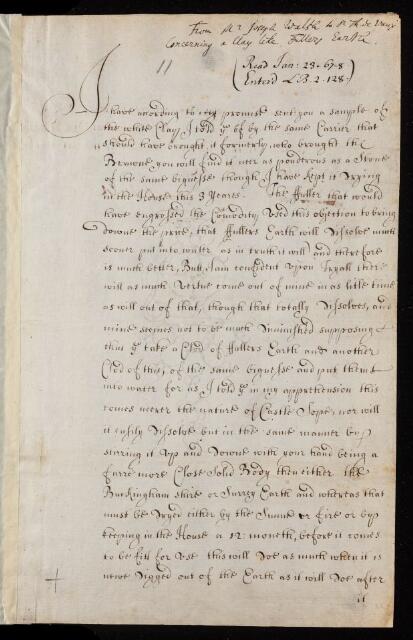 From Mr Joseph Walsh to Sr Th. de Vaux
Concerning a Clay like Fullers Earth.
11
(Read Jan: 23-67 8)
(Enterd L.B. 2. 128.)
I have according to my promise sent you a sample of
the white Clay, I told yu of by the same Carrier that
should have brought it formerly, who brought the
Browne, you will find it neer as ponderous as a Stone
of the same bignesse though I have kept it drying
in the House this 3 Years. The Fuller that would
have engrossed the Comodity used this objection to bring
downe the price, that Fullers Earth will dissolve much
sooner put into water as in truth it will and therefore
is much better, But I am confident upon tryall there
will as much vertue come out of mine in as little time
as will out of that, though that totally dissolves, and
mine seemes not to be much diminished supposing
thus yu take a Clod of Fullers Earth and another
Clod of this, of the same bignesse and put them
into water for as I told yu in my apprehension this
comes neerer the nature of Castle Sope, nor will
it easily dissolve but in the same manner by
stirring it up and downe with your hand being a
farre more Close Solid Body then either the
Buckingham shire or Surrey Earth and whereas that
must be dryed either by the Sunne or fire or by
keeping in the House a 12 month, before it comes
to be fitt for use this will doe as much when it is
newe digged out of the Earth as it will doe after
it